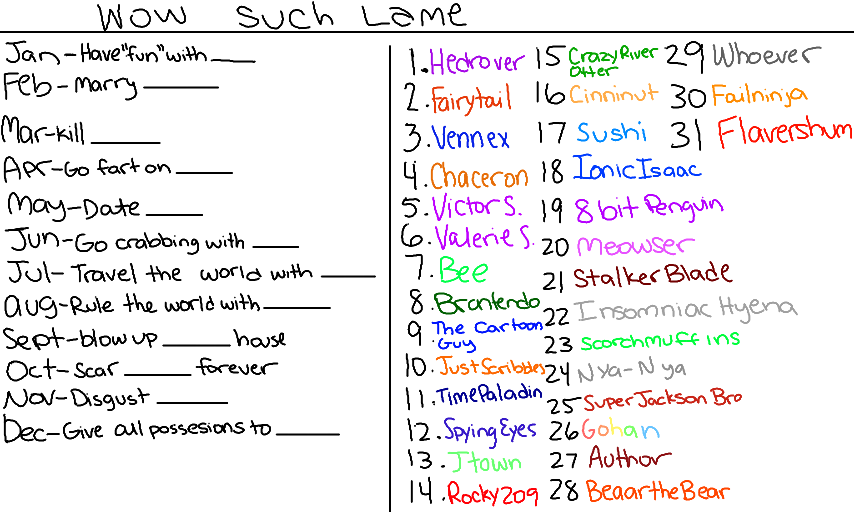 Wow Such Lame
Jan-Have "fun" with ____
Feb-Marry ____
Mar-kill ____
Apr-Go fart on ____
May-Date ____
Jun-Go crabbing with ____
Jul-Travel the world with ____
aug-Rule the world with ____
Sept-blow up ____ house
Oct-scar ____ forever
Nov-Disgust ____
Dec-Give all possesions to ____
1. Hedrover
2. Fairytail
3. Vennex
4. Chaceron
5. Victor S.
6. Valerie S.
7. Bee
8. Brontendo
9. The Cartoon
Guy
10. JustScribbles
11. TimePaladin
12. SpyingEyes
13. Jtown
14. Rocky209
15 CrazyRiver
Otter
16 Cinninut
17 Sushi
18 IonicIsaac
19 8bit Penguin
20 Meowser
21 StalkerBlade
22 Insomniac Hyena
23 Scorchmuffins
24 Nya-Nya
25 SuperJacksonBro
26 Gohan
27 Author
28 BeaartheBear
29 Whoever
30 Failninja
31 Flavershum